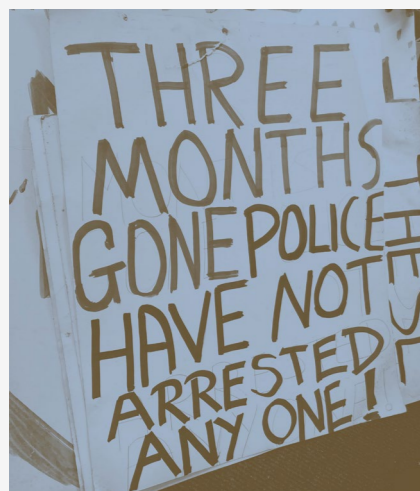 THREE
MONTHS
GONE POLICE
HAVE NOT
ARRESTED
ANY ONE!